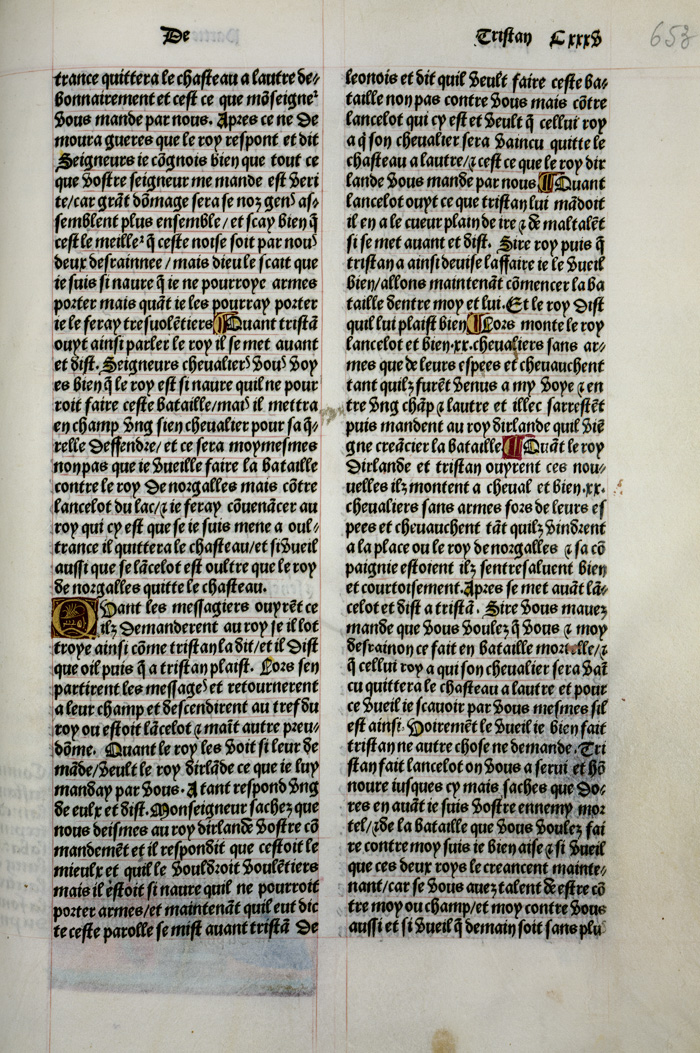 De
Tristan Cxxxv
653
trance quittera le chasteau a lautre de⸗
bonnairement et cest ce que mõseigneʳ
vous mande par nous. Apres ce ne de
moura gueres que le roy respont et dit
Seigneurs ie cõgnois bien que tout ce
que vostre seigneur me mande est veri
te/car grãt dõmage sera se noz gens as⸗
semblent plus ensemble/et scay bien q̃
cest le meilleʳ q̃ ceste noise soit par nous
deux desrainnee/mais dieu le scait que
ie suis si naure q̃ ie ne pourroye armes
porter mais quãt ie les pourray porter
ie le feray tresuolẽtiers ¶Quant tristã
ouyt ainsi parler le roy il se met auant
et dist. Seigneurs cheualiers vous voy
es bien q̃ le roy est si naure quil ne pour
roit faire ceste bataille/mais il mettra
en champ vng sien cheualier pour sa q̃⸗
relle deffendre/et ce sera moymesmes
non pas que ie vueille faire la bataille
contre le roy de norgalles mais cõtre
lancelot du lac/⁊ ie feray cõuenãcer au
roy qui cy est que se ie suis mene a oul⸗
trance il quittera le chasteau/et si vueil
aussi que se lãcelot est oultre que le roy
de norgalles quitte le chasteau.
Quant les messagiers ouyrẽt ce
ilz demanderent au roy se il lot
troye ainsi cõme tristan la dit/et il dist
que oil puis q̃ a tristan plaist. Lors sen
partirent les messages et retournerent
a leur champ et descendirent au tref du
roy ou estoit lãcelot ⁊ maĩt autre preu⸗
dõme. Quant le roy les voit si leur de
mãde/veult le roy dirlãde ce que ie luy
manday par vous. A tant respond vng
de eulx et dist. Monseigneur sachez que
nous deismes au roy dirlande vostre cõ
mandemẽt et il respondit que cestoit le
mieulx et quil le vouldroit voulẽtiers
mais il estoit si naure quil ne pourroit
porter armes/et maintenãt quil eut dic
te ceste parolle se mist auant tristã de
leonois et dit quil veult faire ceste ba⸗
taille non pas contre vous mais cõtre
lancelot qui cy est et veult q̃ cellui roy
a q̃ son cheualier sera vaincu quitte le
chasteau a lautre/⁊ cest ce que le roy dir
lande vous mande par nous ¶Quant
lancelot ouyt ce que tristan lui mãdoit
il en a le cueur plain de ire ⁊ de maltalẽt
si se met auant et dist. Sire roy puis q̃
tristan a ainsi deuise laffaire ie le vueil
bien/allons maintenãt cõmencer la ba
taille dentre moy et lui. Et le roy dist
quil lui plaist bien ¶Lors monte le roy
lancelot et bien .xx. cheualiers sans ar⸗
mes que de leurs espees et cheuauchent
tant quilz furẽt venus a my voye ⁊ en
tre vng chãp ⁊ lautre et illec sarrestẽt
puis mandent au roy dirlande quil viẽ
gne creãcier la bataille ¶Quãt le roy
dirlande et tristan ouyrent ces nou⸗
uelles ilz montent a cheual et bien .xx.
cheualiers sans armes fors de leurs es
pees et cheuauchent tãt quilz vindrent
a la place ou le roy de norgalles ⁊ sa cõ
paignie estoient ilz sentresaluent bien
et courtoisement. Apres se met auãt lã⸗
celot et dist a tristã. Sire vous mauez
mande que vous voulez q̃ vous ⁊ moy
desrainon ce fait en bataille mortelle/⁊
q̃ cellui roy a qui son cheualier sera vaĩ
cu quittera le chasteau a lautre et pour
ce vueil ie scauoir par vous mesmes sil
est ainsi. Voiremẽt le vueil ie bien fait
tristan ne autre chose ne demande. Tri
stan fait lancelot on vous a serui et hõ
noure iusques cy mais saches que do⸗
res en auãt ie suis vostre ennemy mor
tel/⁊ de la bataille que vous voulez fai
re contre moy suis ie bien aise ⁊ si vueil
que ces deux roys le creancent mainte⸗
nant/car se vous auez talent de estre cõ
tre moy ou champ/et moy contre vous
aussi et si vueil q̃ demain soit sans plus